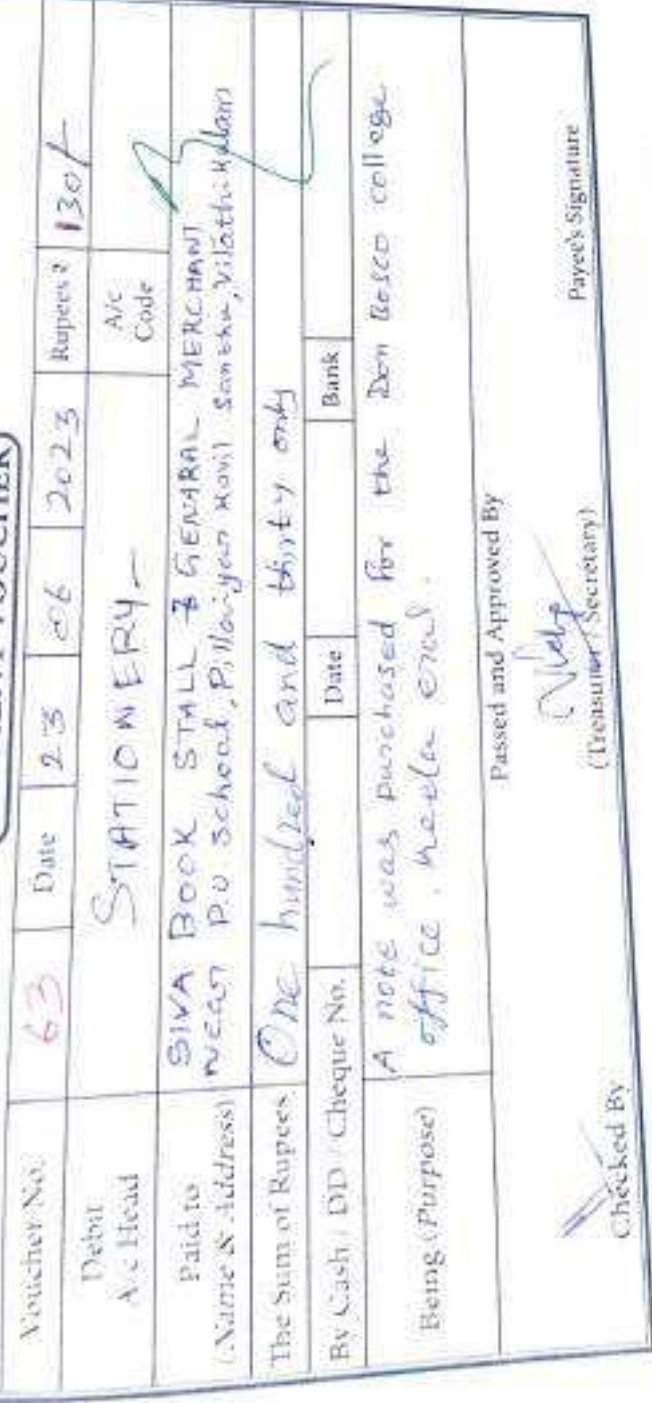 VOUCHER
Voucher No. 63 Date 23 06 2023 Rupees ₹ 130/-
Debit A/c Head STATIONERY - A/c Code
Paid to (Name & Address) SIVA BOOK STALL & GENARAL MERCHANT
near P.U School, Pillaiyar Kovil Santha, Vilathikulam
The Sum of Rupees One hundred and thirty only
By Cash / DD / Cheque No. Date Bank
Being (Purpose) A note was purchased for the Don Bosco college
office
Passed and Approved By
Checked By (Treasurer / Secretary) Payee's Signature